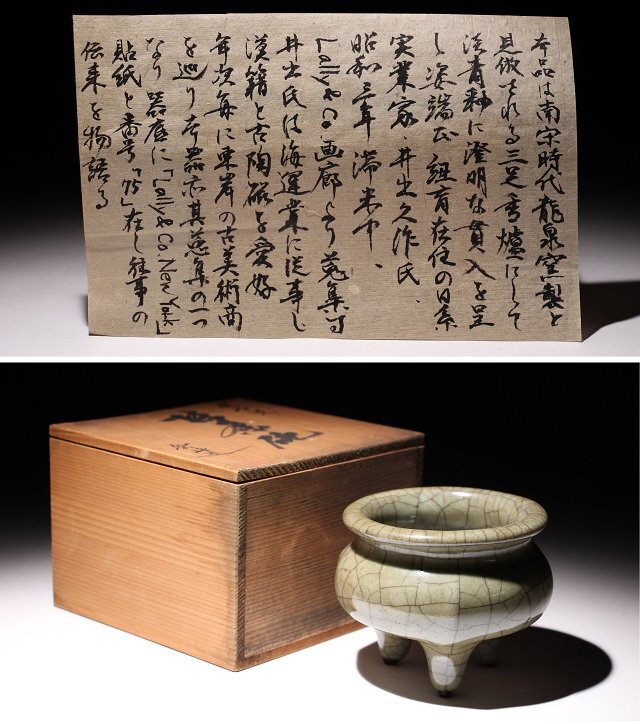 本品は南宋時代龍泉窯製と
見倣される三足香爐にして
淡青釉に澄明な貫入を呈
し姿端正 紐育在住の日系
実業家 井出久作氏、
昭和三年 滞米中、
Lally & Co.画廊より蒐集す
井出氏は海運業に従事し
漢籍と古陶磁を愛好
年次毎に東岸の古美術商
を巡り本器亦其蒐集の一つ
なり 器底に「Lally & Co New York」
貼紙と番号「」在し往事の
伝来を物語る